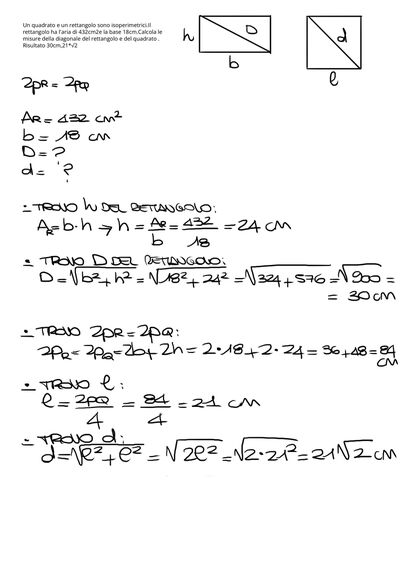 Un quadrato e un rettangolo sono isoperimetrici.Il
rettangolo ha l'aria di 432cm2e la base 18cm.Calcola le
misure della diagonale del rettangolo e del quadrato .
Risultato 30cm,21*√2
h D b
d l
2pR = 2pQ
AR = 432 cm²
b = 18 cm
D = ?
d = ?
- TROVO h DEL RETTANGOLO:
AR = b·h → h = AR/b = 432/18 = 24 cm
• TROVO D DEL RETTANGOLO:
D = √b² + h² = √18² + 24² = √324 + 576 = √900 =
= 30 cm
• TROVO 2pR = 2pQ:
2pR = 2pQ = 2b + 2h = 2·18 + 2·24 = 36 + 48 = 84 cm
• TROVO l:
l = 2pQ/4 = 84/4 = 21 cm
- TROVO d:
d = √l² + l² = √2l² = √2·21² = 21√2 cm